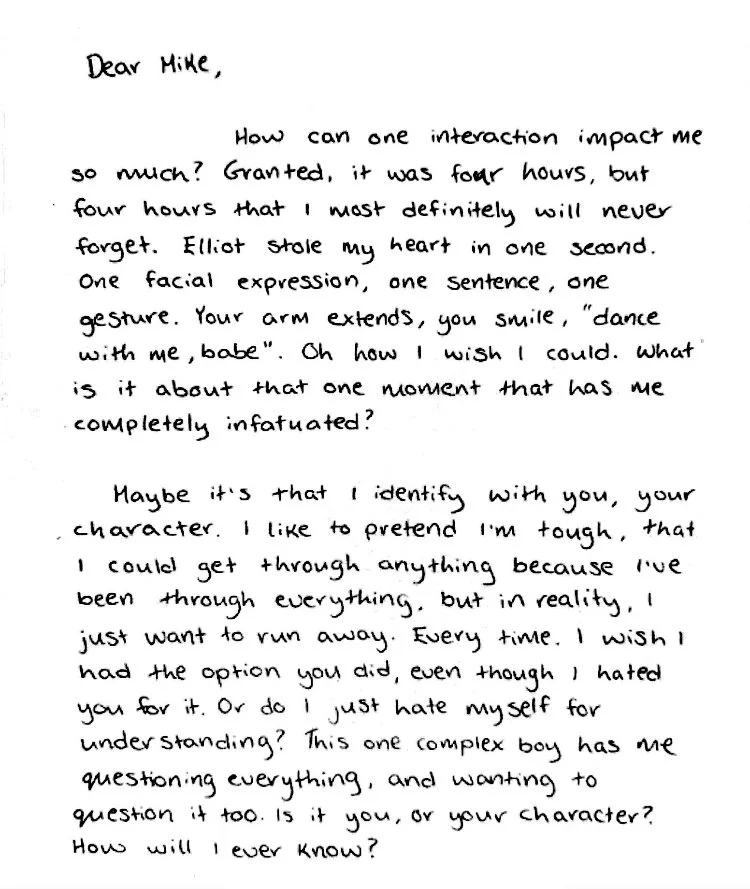 Dear Mike,
How can one interaction impact me
so much? Granted, it was four hours, but
four hours that I most definitely will never
forget. Elliot stole my heart in one second.
One facial expression, one sentence, one
gesture. Your arm extends, you smile, "dance
with me, babe". Oh how I wish I could. What
is it about that one moment that has me
completely infatuated?
Maybe it's that I identify with you, your
character. I like to pretend I'm tough, that
I could get through anything because I've
been through everything, but in reality, I
just want to run away. Every time. I wish I
had the option you did, even though I hated
you for it. Or do I just hate myself for
understanding? This one complex boy has me
questioning everything, and wanting to
question it too. Is it you, or your character?
How will I ever know?